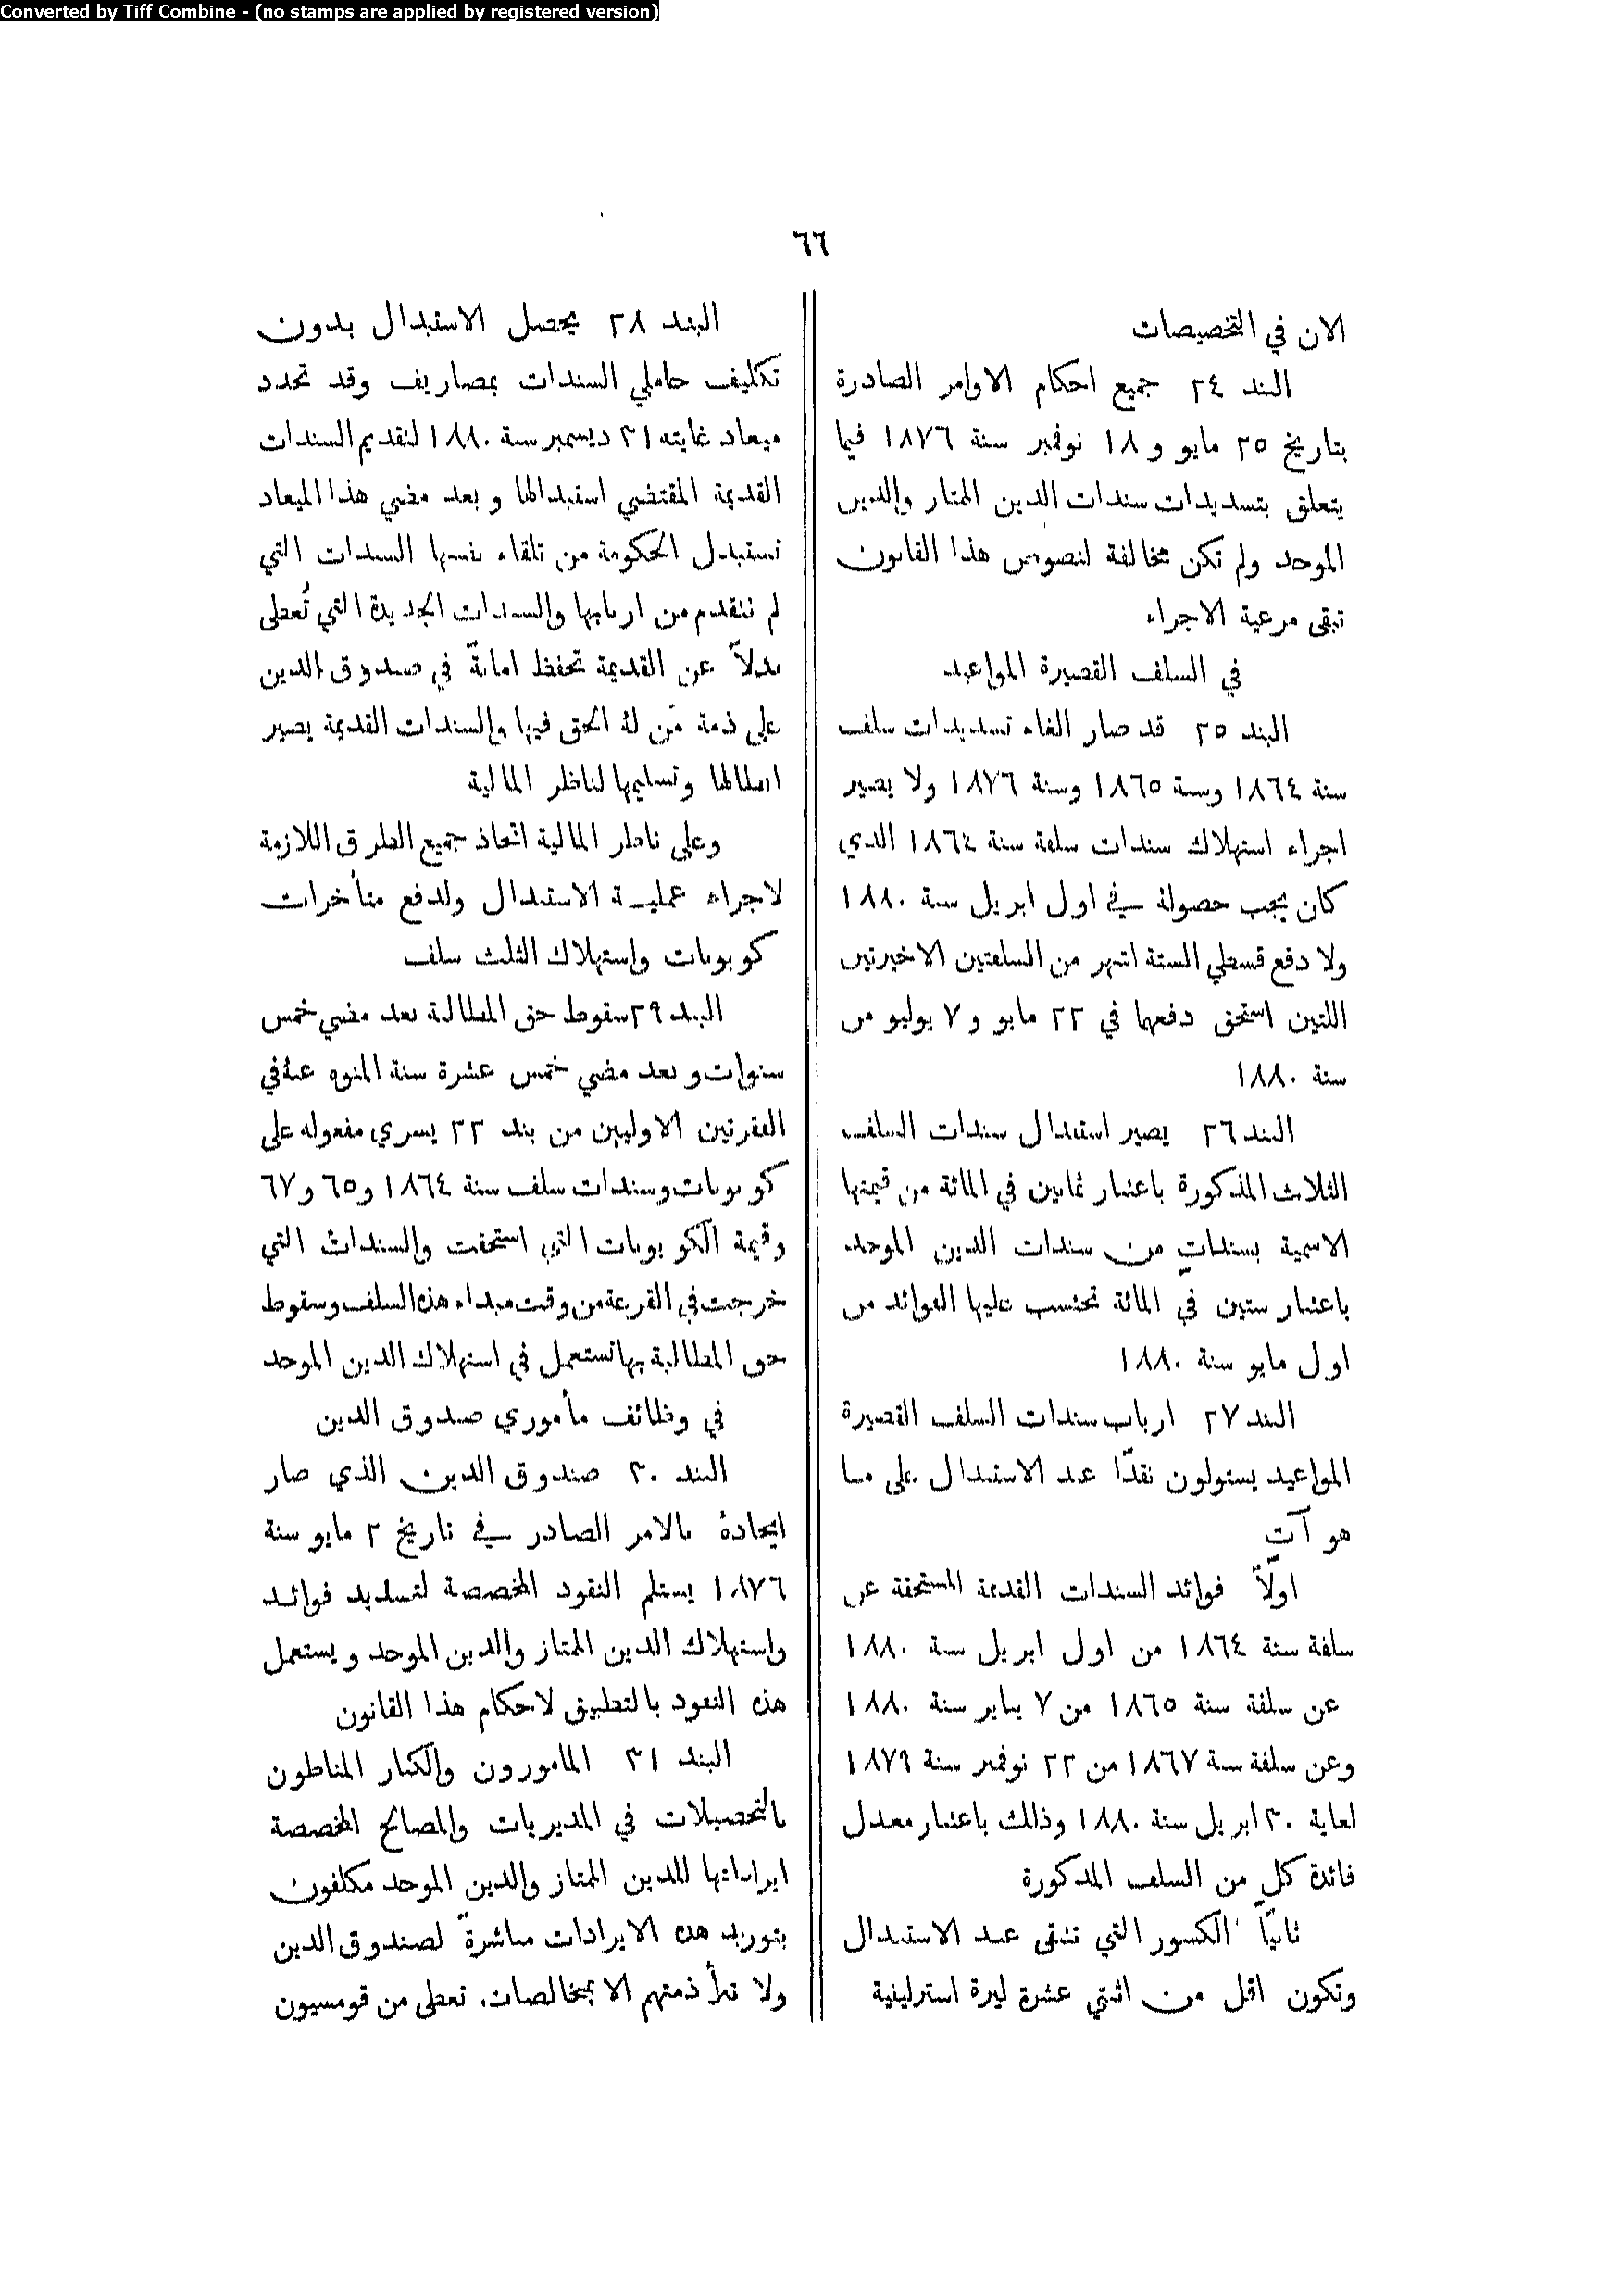 Converted by Tiff Combine - (no stamps are applied by registered version)
٦٦
الان في التخصيصات
البند ٢٤ جميع احكام الاوامر الصادرة
بتاريخ ٢٥ مايو و ١٨ نوفمبر سنة ١٨٧٦ فيما
يتعلق بتسديدات سندات الدين الممتاز والدين
الموحد ولم تكن مخالفة لنصوص هذا القانون
تبقى مرعية الاجراء
في السلف القصيرة المواعيد
البند ٢٥ قد صار الغاء تسديدات سلف
سنة ١٨٦٤ وسنة ١٨٦٥ وسنة ١٨٧٦ ولا يصير
اجراء استهلاك سندات سلفة سنة ١٨٦٤ الذي
كان يجب حصولهُ في اول ابريل سنة ١٨٨٠
ولا دفع قسطي الستة اشهر من السلفتين الاخيرتين
اللتين استحق دفعها في ٢٢ مايو و ٧ يوليو من
سنة ١٨٨٠
البند ٢٦ يصير استبدال سندات السلف
الثلاث المذكورة باعتبار ثمانين في المائة من قيمتها
الاسمية بسنداتٍ من سندات الدين الموحد
باعتبار ستين في المائة تحتسب عليها الفوائد من
اول مايو سنة ١٨٨٠
البند ٢٧ ارباب سندات السلف القصيرة
المواعيد يستولون نقدًا عند الاستبدال على ما
هو آتٍ
اولاً فوائد السندات القديمة المستحقة عن
سلفة سنة ١٨٦٤ من اول ابريل سنة ١٨٨٠
عن سلفة سنة ١٨٦٥ من ٧ يناير سنة ١٨٨٠
وعن سلفة سنة ١٨٦٧ من ٢٢ نوفمبر سنة ١٨٧٩
لغاية ٣٠ ابريل سنة ١٨٨٠ وذلك باعتبار معدل
فائدة كلٍ من السلف المذكورة
ثانياً الكسور التي تتبقى عند الاستبدال
وتكون اقل من اثنتي عشرة ليرة استرلينية
البند ٢٨ يحصل الاستبدال بدون
تكليف حاملي السندات بمصاريف وقد تحدد
ميعاد غايته ٣١ ديسمبر سنة ١٨٨٠ لتقديم السندات
القديمة المقتضي استبدالها وبعد مضي هذا الميعاد
تستبدل الحكومة من تلقاء نفسها السندات التي
لم تتقدم من اربابها والسندات الجديدة التي تُعطى
بدلاً عن القديمة تحفظ امانةً في صندوق الدين
على ذمة مَن لهُ الحق فيها والسندات القديمة يصير
ابطالها وتسليمها لناظر المالية
وعلى ناظر المالية اتخاذ جميع الطرق اللازمة
لاجراء عملية الاستبدال ولدفع متأخرات
كوبونات واستهلاك الثلث سلف
البند ٢٩ سقوط حق المطالبة بعد مضي خمس
سنوات وبعد مضي خمس عشرة سنة المنوه عنهُ في
الفقرتين الاوليين من بند ٢٢ يسري مفعوله على
كوبونات وسندات سلف سنة ١٨٦٤ و ٦٥ و ٦٧
وقيمة الكوبونات التي استحقت والسندات التي
خرجت في القرعة من وقت مبداء هذه السلف وسقوط
حق المطالبة بها تستعمل في استهلاك الدين الموحد
في وظائف مأموري صندوق الدين
البند ٣٠ صندوق الدين الذي صار
ايجادهُ بالامر الصادر في تاريخ ٢ مايو سنة
١٨٧٦ يستلم النقود المخصصة لتسديد فوائد
واستهلاك الدين الممتاز والدين الموحد ويستعمل
هذه النقود بالتطبيق لاحكام هذا القانون
البند ٣١ المامورون والكتار المناطون
بالتحصيلات في المديريات والمصالح المخصصة
ايراداتها للدين الممتاز والدين الموحد مكلفون
بتوريد هذه الايرادات مباشرةً لصندوق الدين
ولا تبرأ ذمتهم الا بمخالصات تعطى من قومسيون